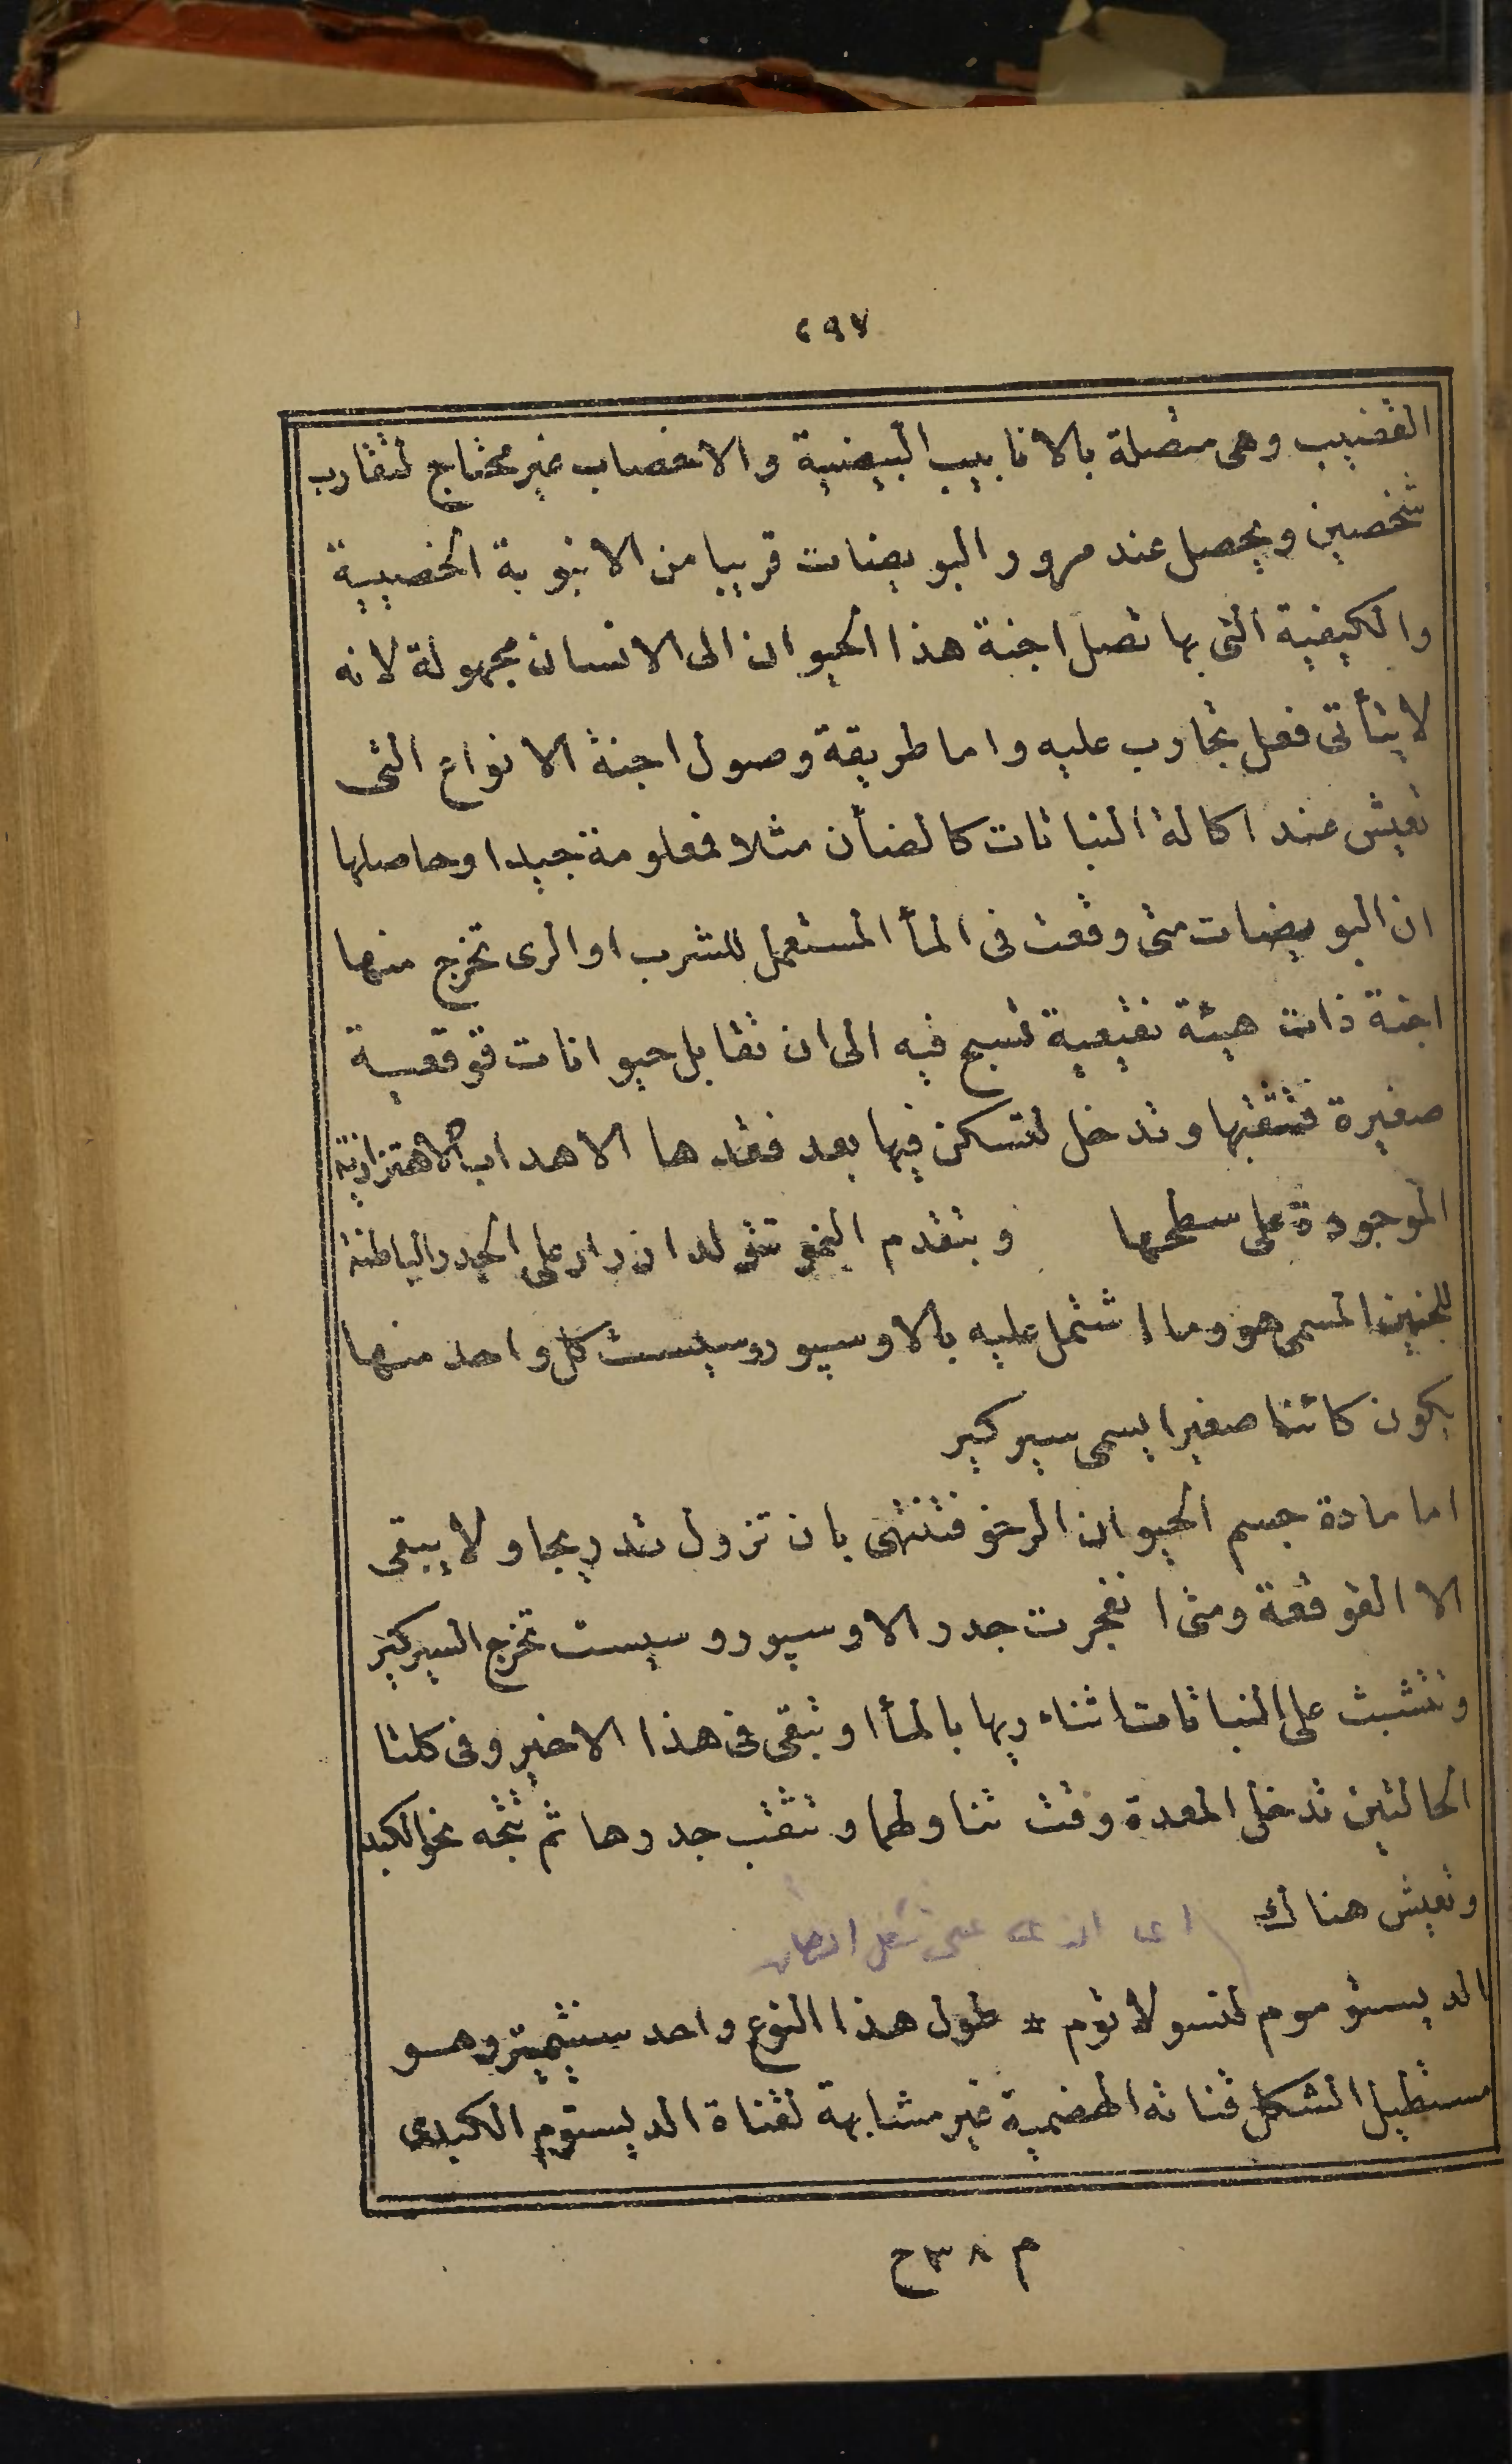 ٢٩٧
القضيب وهى متصلة بالانابيب البيضية والاخصاب غير محتاج لتقارب
شخصين ويحصل عند مرور البويضات قريبا من الانبوبة الخصيية
والكيفية التى بها تصل اجنة هذا الحيوان الى الانسان مجهولة لانه
لا يتأتى فعل تجارب عليه واما طريقة وصول اجنة الانواع التى
تعيش عند اكالة النباتات كالضأن مثلا فمعلومة جيدا وحاصلها
ان البويضات متى وقعت فى المأ المستعمل للشرب او الرى تخرج منها
اجنة ذات هيئة نقيعية تسبح فيه الى ان تقابل حيوانات قوقعية
صغيرة فتثقبها وتدخل لتسكن فيها بعد فقدها الاهداب الاهتزازية
الموجودة على سطحها وبتقدم النمو تتولد ازرار على الجدر الباطنة
للجنين المسمى هو وما اشتمل عليه بالاوسپوروسيست كل واحد منها
يكون كائنا صغيرا يسمى سيركير
اما مادة جسم الحيوان الرخو فتنتهى بان تزول تدريجا ولا يبقى
الا القوقعة ومتى انفجرت جدر الاوسپوروسيست تخرج السيركير
وتتشبث على النباتات اثناء ريها بالمأ او تبقى فى هذا الاخير وفى كلتا
الحالتين تدخل المعدة وقت تناولهما وتثقب جدرها ثم تتجه نحو الكبد
وتعيش هناك
الديستوموم لنسولاتوم * طول هذا النوع واحد سنتيمتر وهو
مستطيل الشكل قناته الهضمية غير مشابهة لقناة الديستوم الكبدى
م ٣٨ ح